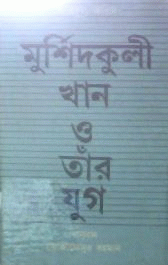 মুর্শিদকুলী
খান
ও
তাঁর
যুগ